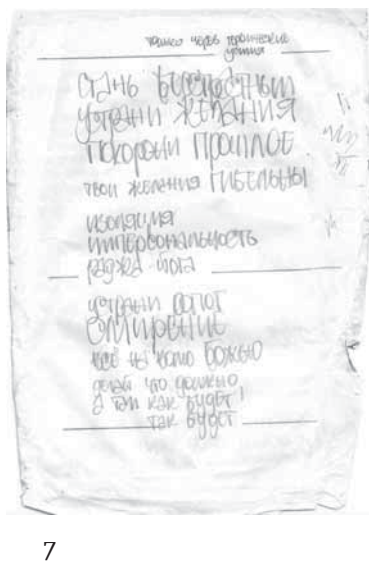 только через героические
усилия
стань бесстрастным
устрани желания
похорони прошлое
твои желания гибельны
изоляция
имперсональность
раджа-йога
устрани ропот
смирение
всё на волю божью
делай что должно
а там как будет!
так будет
7